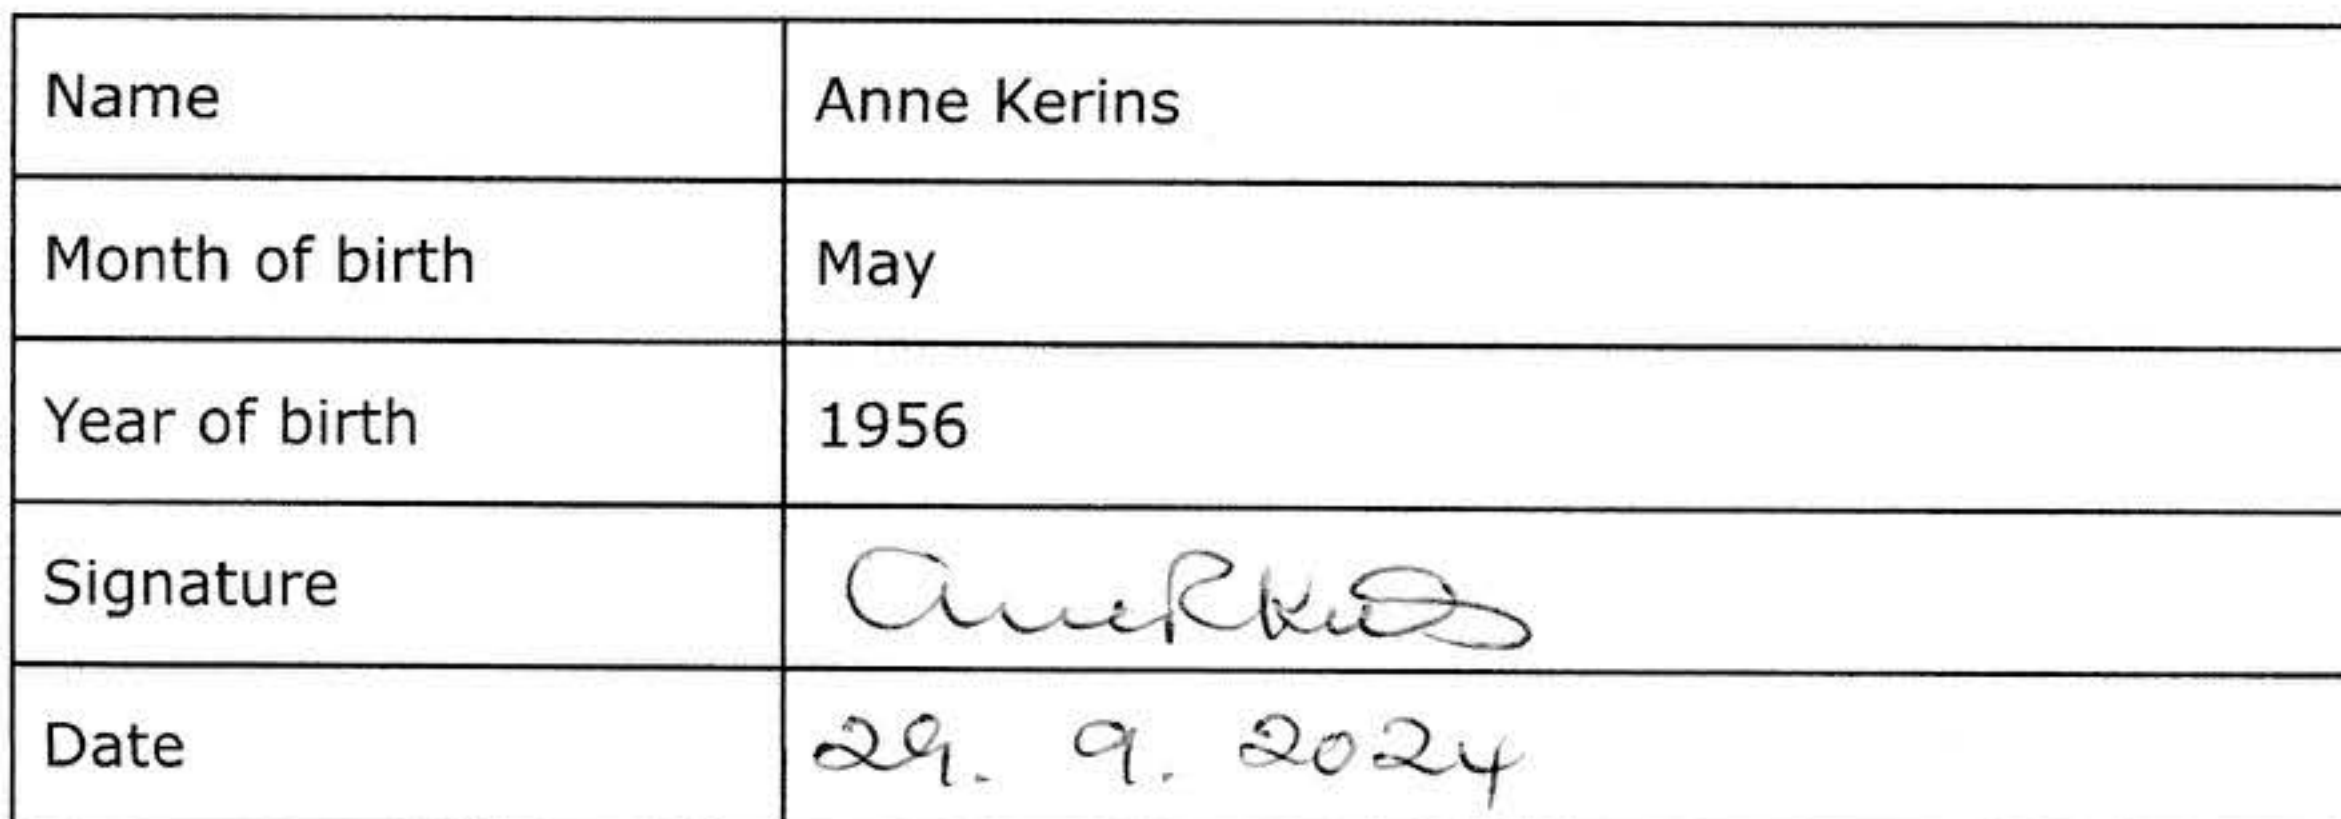 Name Anne Kerins
Month of birth May
Year of birth 1956
Signature
Date 29. 9. 2024